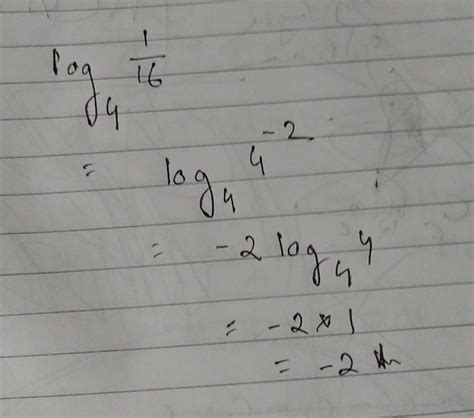 log₄ 1/16
= log₄ 4⁻²
= -2 log₄ 4
= -2 × 1
= -2